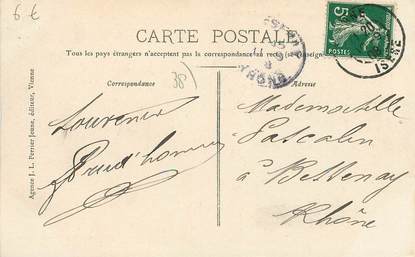 6 €
CARTE POSTALE
Tous les pays étrangers n'acceptent pas la correspondance au recto (se renseigner
5
POSTES
ISÈRE
Correspondance
38)
Adresse
Agence J. L. Perrier Jeune, éditeur, Vienne
Souvenir
Prud'homme
Mademoiselle
Pascalin
à Bessenay
Rhône